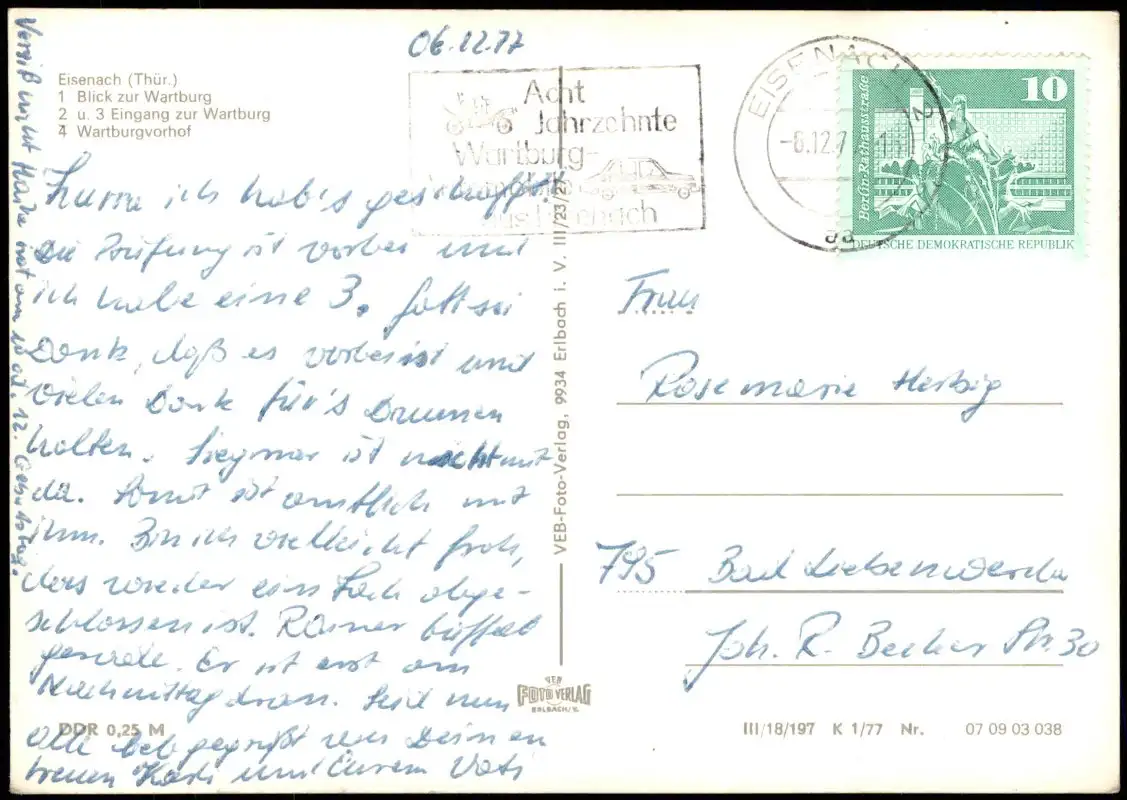 06.12.77
Eisenach (Thür.)
1 Blick zur Wartburg
2 u. 3 Eingang zur Wartburg
4 Wartburgvorhof
Hurra ich hab's geschafft!
Die Prüfung ist vorbei und
ich habe eine 3. Gott sei
Dank, daß es vorbei ist und
vielen Dank für's Daumen
halten. Siegmar ist nicht mit
da. Somit ist amtlich mit
ihm. Bin ich vielleicht froh,
das wieder ein Fach abge-
schlossen ist. Rainer büffelt
gerade. Er ist erst am
Nachmittag dran. Seid nun
alle lieb gegrüßt von Deinen
treuen und Eurem Vati
Vergiß nicht hat am 12. Geburtstag.
DDR 0,25 M
VEB-Foto-Verlag, 9934 Erlbach i. V. III/23/
VEB
FOTO VERLAG
ERLBACH/V.
Acht
Jahrzehnte
Wartburg-
aus Eisenach
EISENACH 2
-6.12.7
aa
10
Berlin-Rathausstraße
DEUTSCHE DEMOKRATISCHE REPUBLIK
Frau
Rosemarie Herbig
795 Bad Liebenwerda
Joh. R. Becher Str. 30
III/18/197 K 1/77 Nr. 07 09 03 038